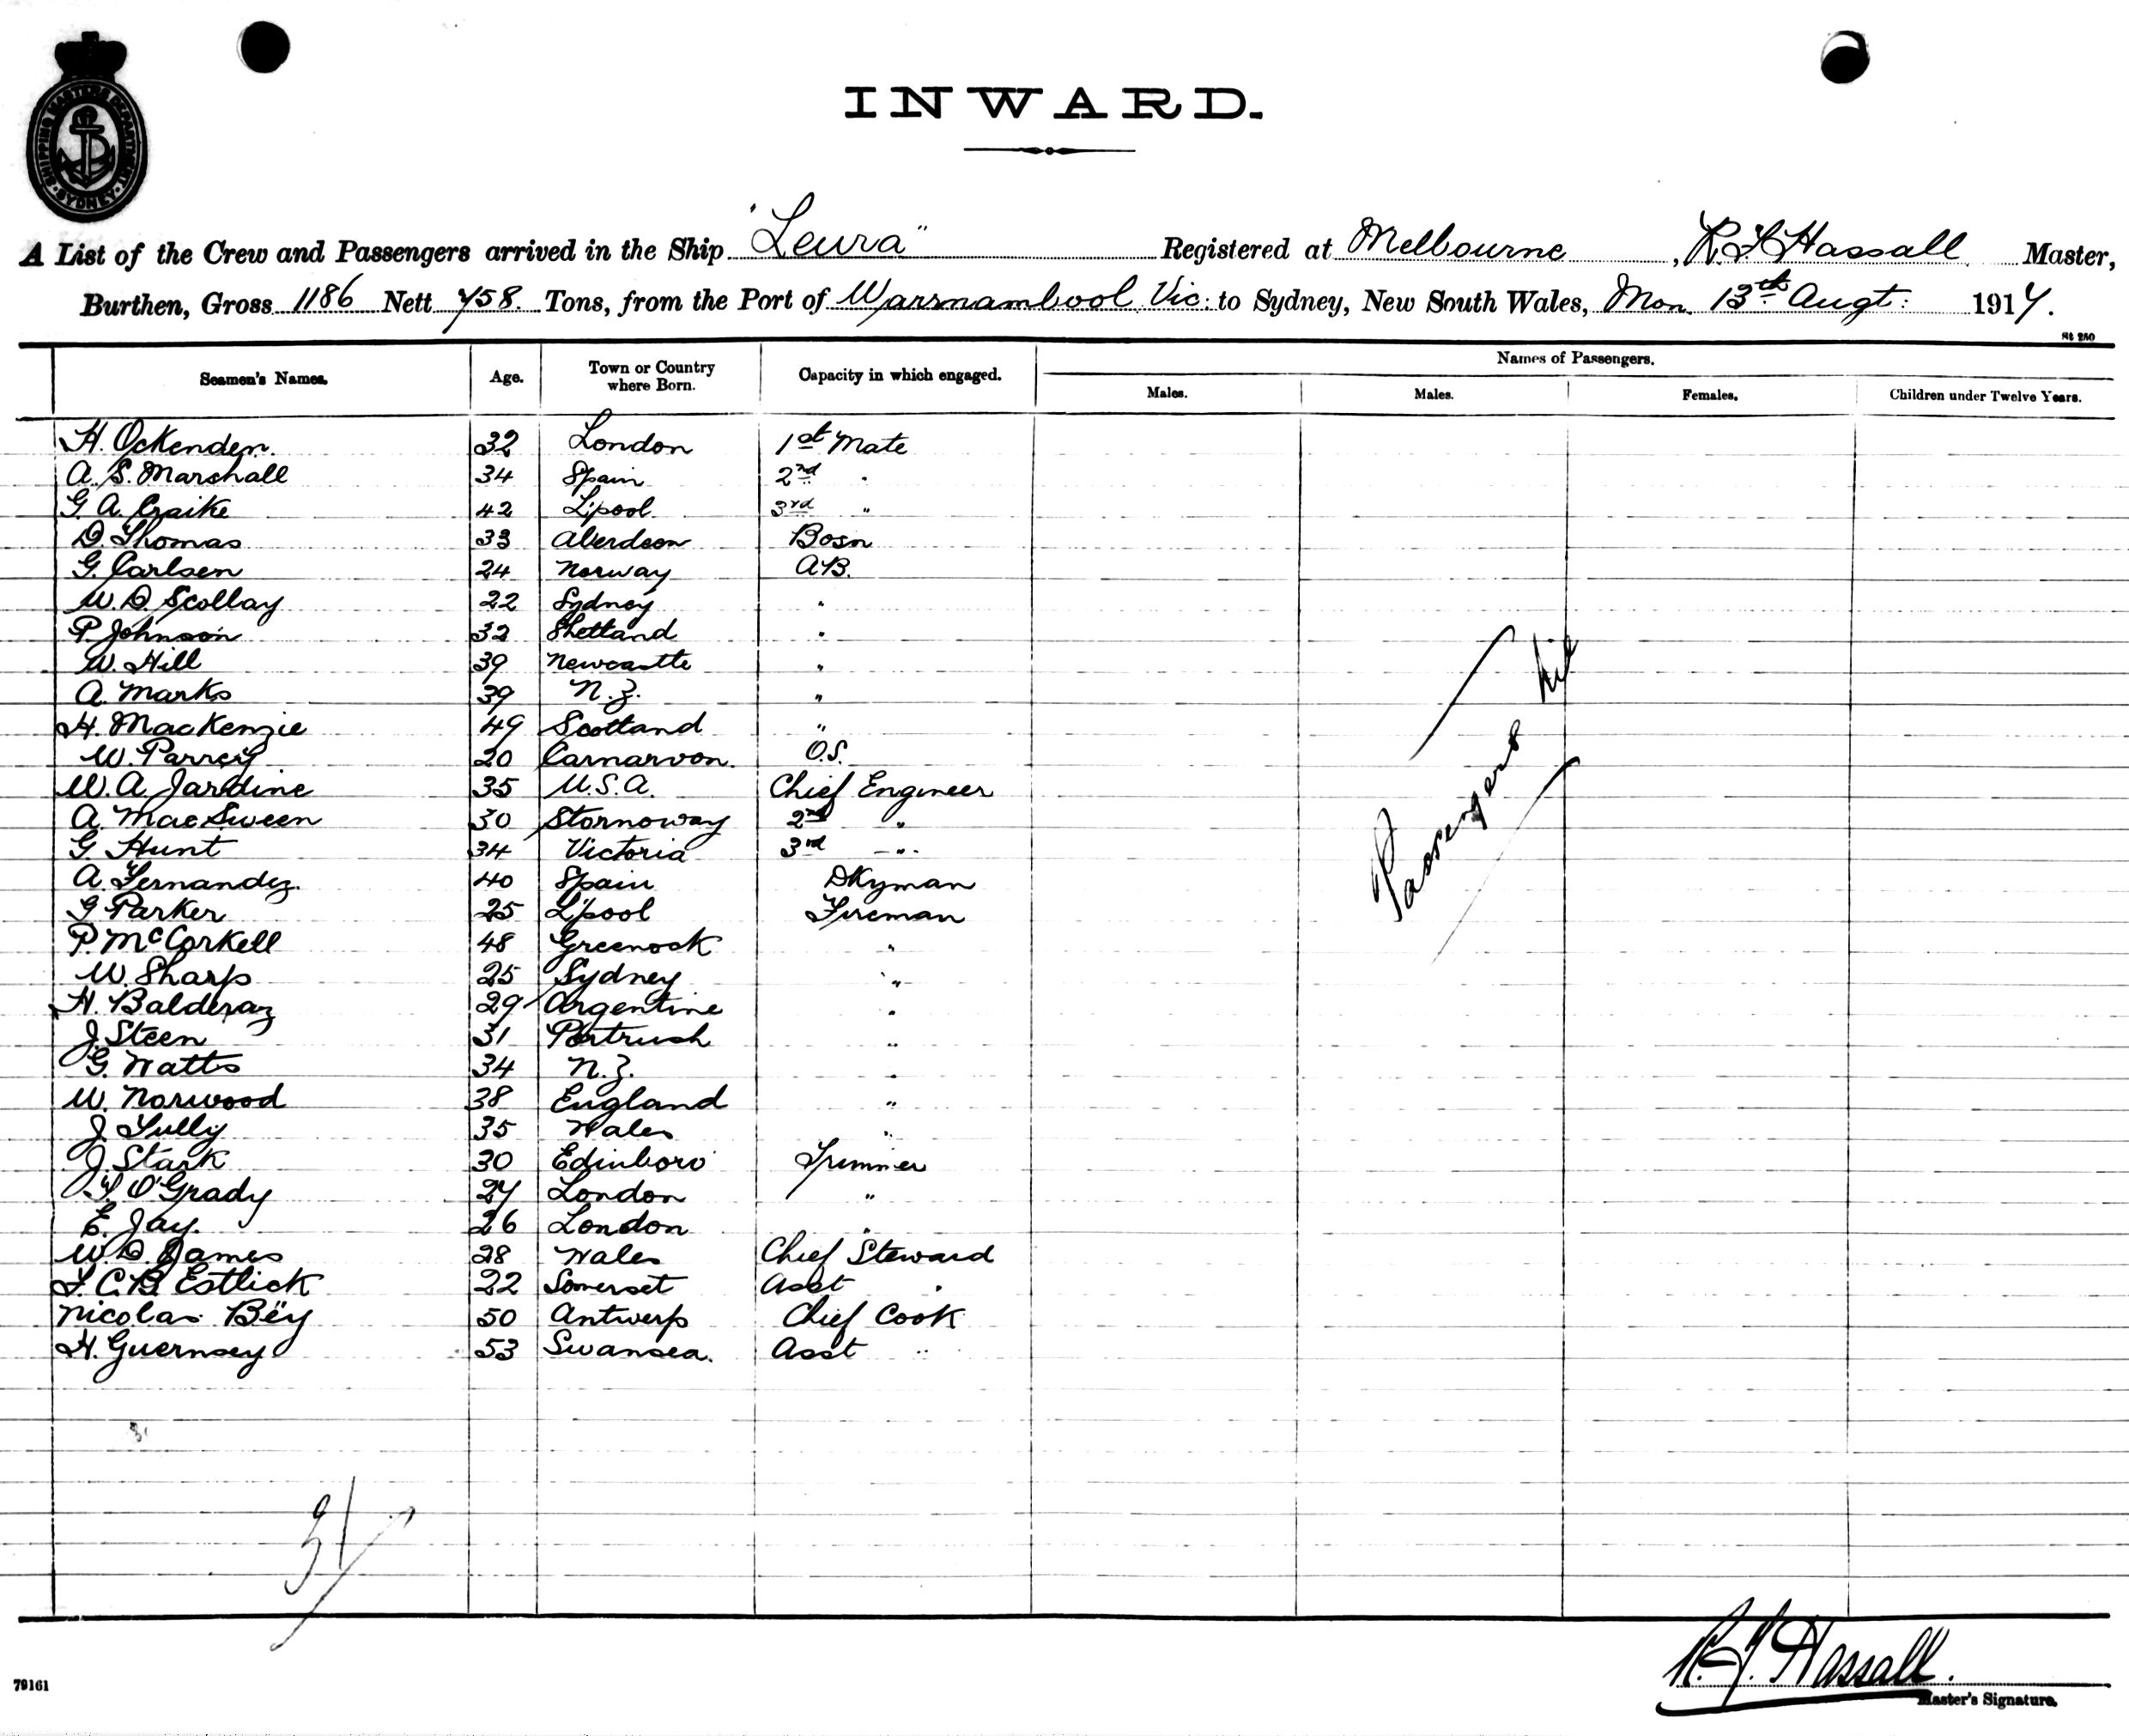 SHIPPING MASTERS DEPARTMENT
SYDNEY
INWARD.
A List of the Crew and Passengers arrived in the Ship "Leura" Registered at Melbourne, R. F. Hassall Master,
Burthen, Gross 1186 Nett 758. Tons, from the Port of Warrnambool Vic: to Sydney, New South Wales, Mon. 13th Augt: 1917.
St 280
Seamen's Names. Age. Town or Country where Born. Capacity in which engaged. Names of Passengers.
Males. Males. Females. Children under Twelve Years.
H. Ockenden. 32 London 1st Mate
A. S. Marshall 34 Spain 2nd "
G. A. Craike 42 L'pool 3rd "
D. Thomas 33 Aberdeen Bosn
G. Carlsen 24 Norway AB.
W. D. Scollay 22 Sydney "
P. Johnson 32 Shetland "
W. Hill 39 Newcastle "
A. Marks 39 N.Z. "
H. MacKenzie 49 Scotland "
W. Parrey 20 Carnarvon. O.S.
W. A. Jardine 35 U.S.A. Chief Engineer
A. MacSween 30 Stornoway 2nd "
G. Hunt 34 Victoria 3rd "
A. Fernandez. 40 Spain Dkyman
G Parker 25 L'pool Fireman
P. McCorkell 48 Greenock "
W. Sharp 25 Sydney "
H. Balderaz 29 Argentine "
J. Steen 31 Portrush "
G. Watts 34 N.Z. "
W. Norwood 38 England "
J. Tully 35 Wales "
J. Stark 30 Edinboro' Trimmer
T. O'Grady 27 London "
E. Jay. 26 London "
W. D. James 28 Wales Chief Steward
F. C. B. Estlick 22 Somerset Asst "
Nicolas Bëy 50 Antwerp Chief Cook
H. Guernsey 53 Swansea. Asst "
Passengers Nil
31
R. F. Hassall.
Master's Signature.
79161